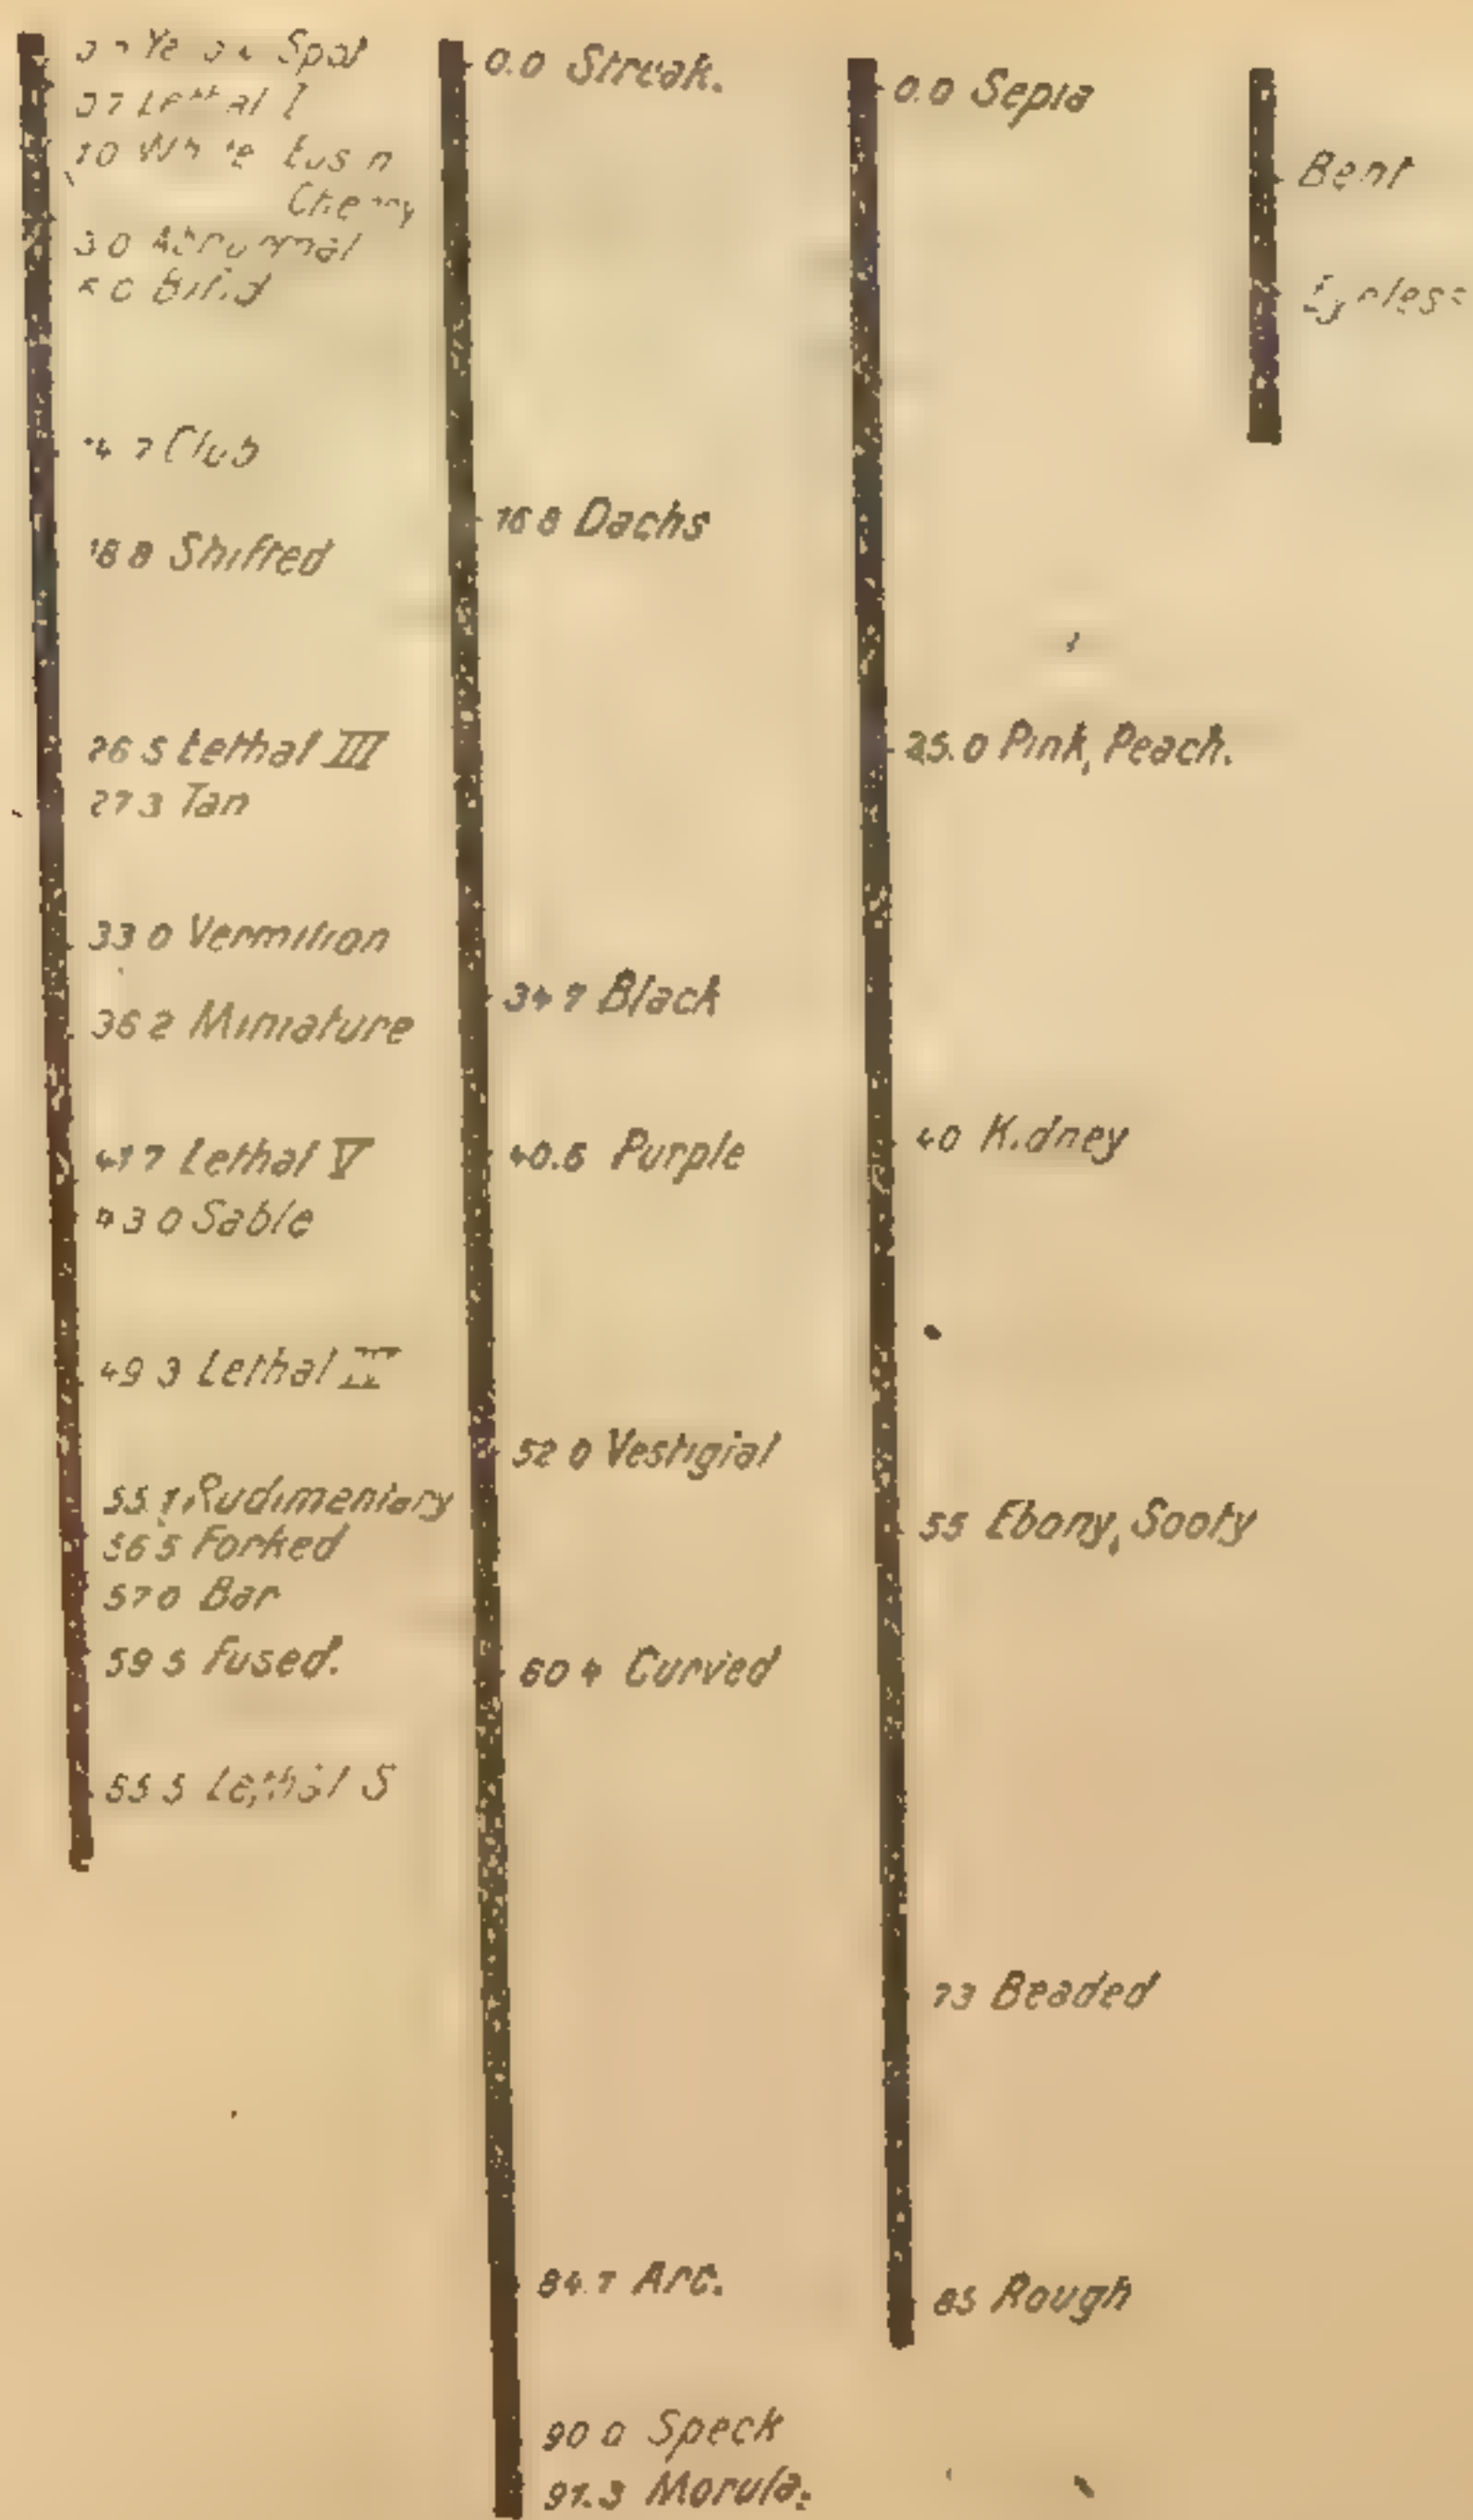 Spot
Lethal I
Cherry
3 0 Abnormal
Bifid
7 Club
18 8 Shifted
26 5 Lethal III
27 3 Tan
33 0 Vermilion
36 2 Miniature
41 7 Lethal V
43 0 Sable
49 3 Lethal
55.1 Rudimentary
56 5 Forked
57 0 Bar
59 5 Fused.
Lethal S
0.0 Streak.
16 8 Dachs
34 7 Black
40.6 Purple
52 0 Vestigial
60 4 Curved
84.7 Arc.
90 0 Speck
91.3 Morula.
0.0 Sepia
25.0 Pink, Peach.
40 Kidney
55 Ebony, Sooty
73 Beaded
85 Rough
Bent
Eyeless